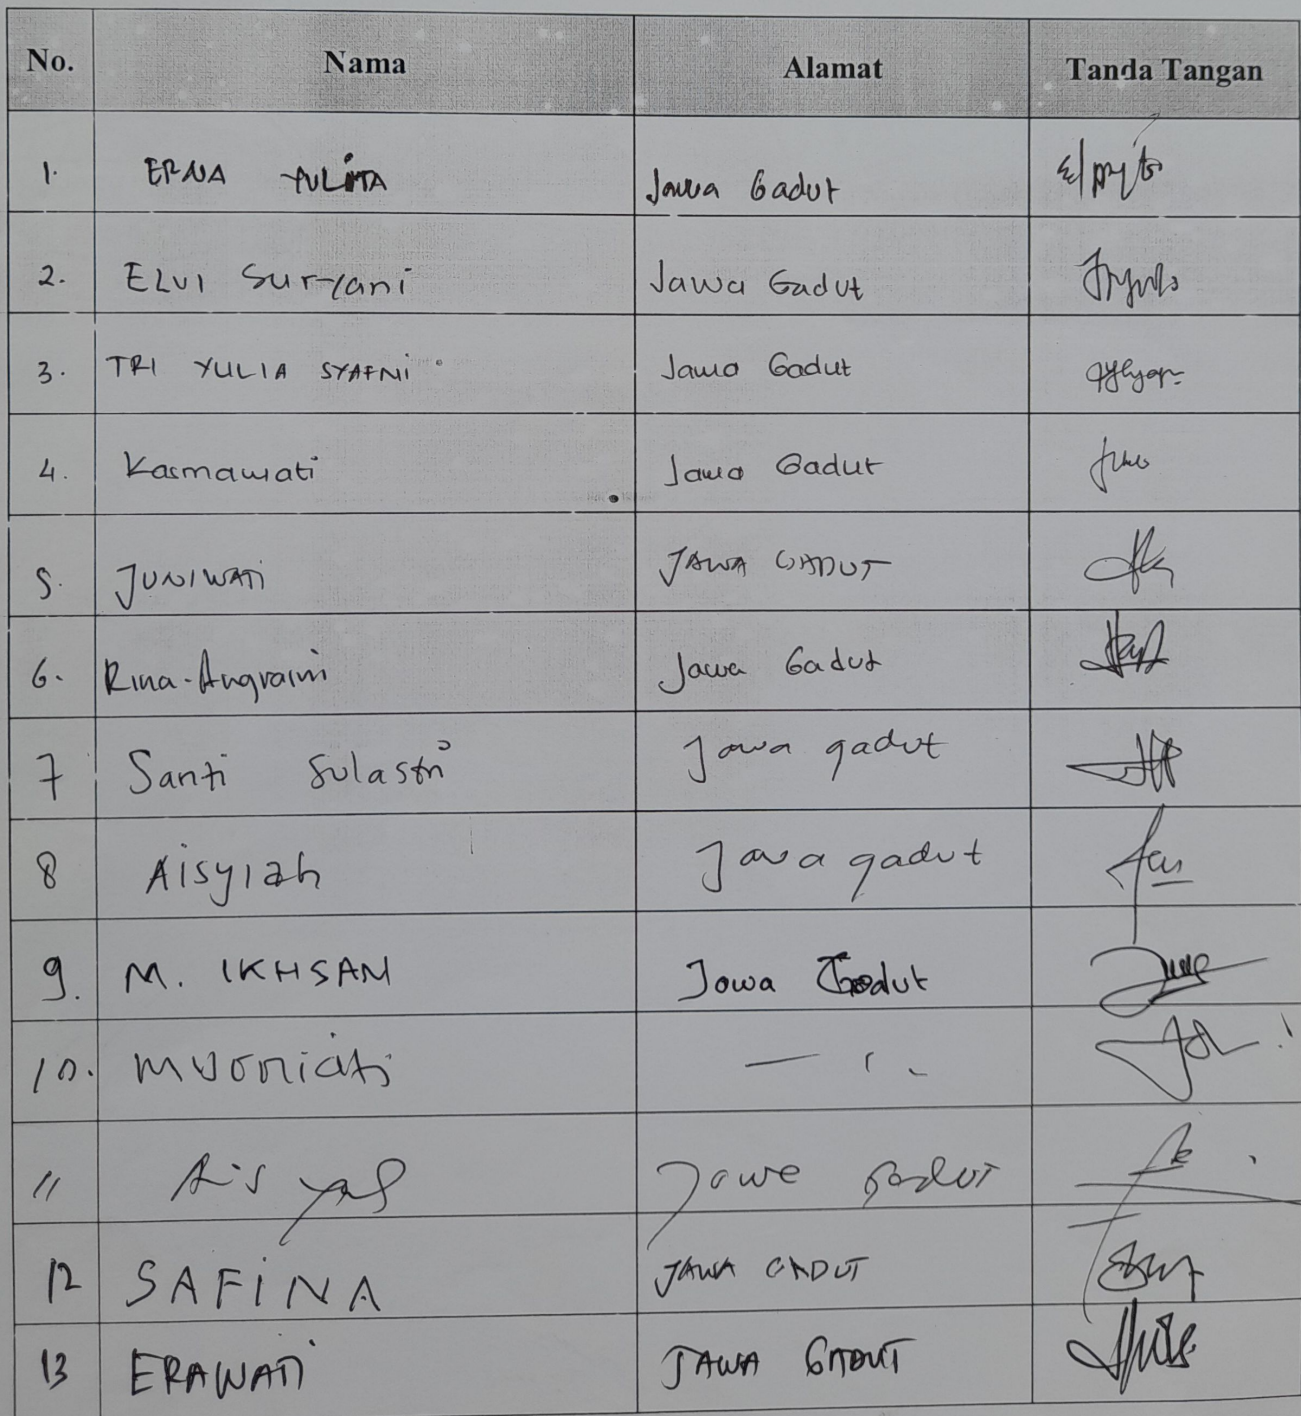 No. Nama Alamat Tanda Tangan
1. ERNA YULITA Jawa Gadut
2. ELVI Suryani Jawa Gadut
3. TRI YULIA SYAFNI Jawa Gadut
4. Kasmawati Jawa Gadut
5. JUNIWATI JAWA GADUT
6. Rina Angraini Jawa Gadut
7 Santi Sulastri Jawa gadut
8 Aisyiah Jawa gadut
9. M. IKHSAN Jawa Gadut
10.
11 Jawe Gadut
12 SAFINA JAWA GADUT
13 ERAWATI JAWA GADUT